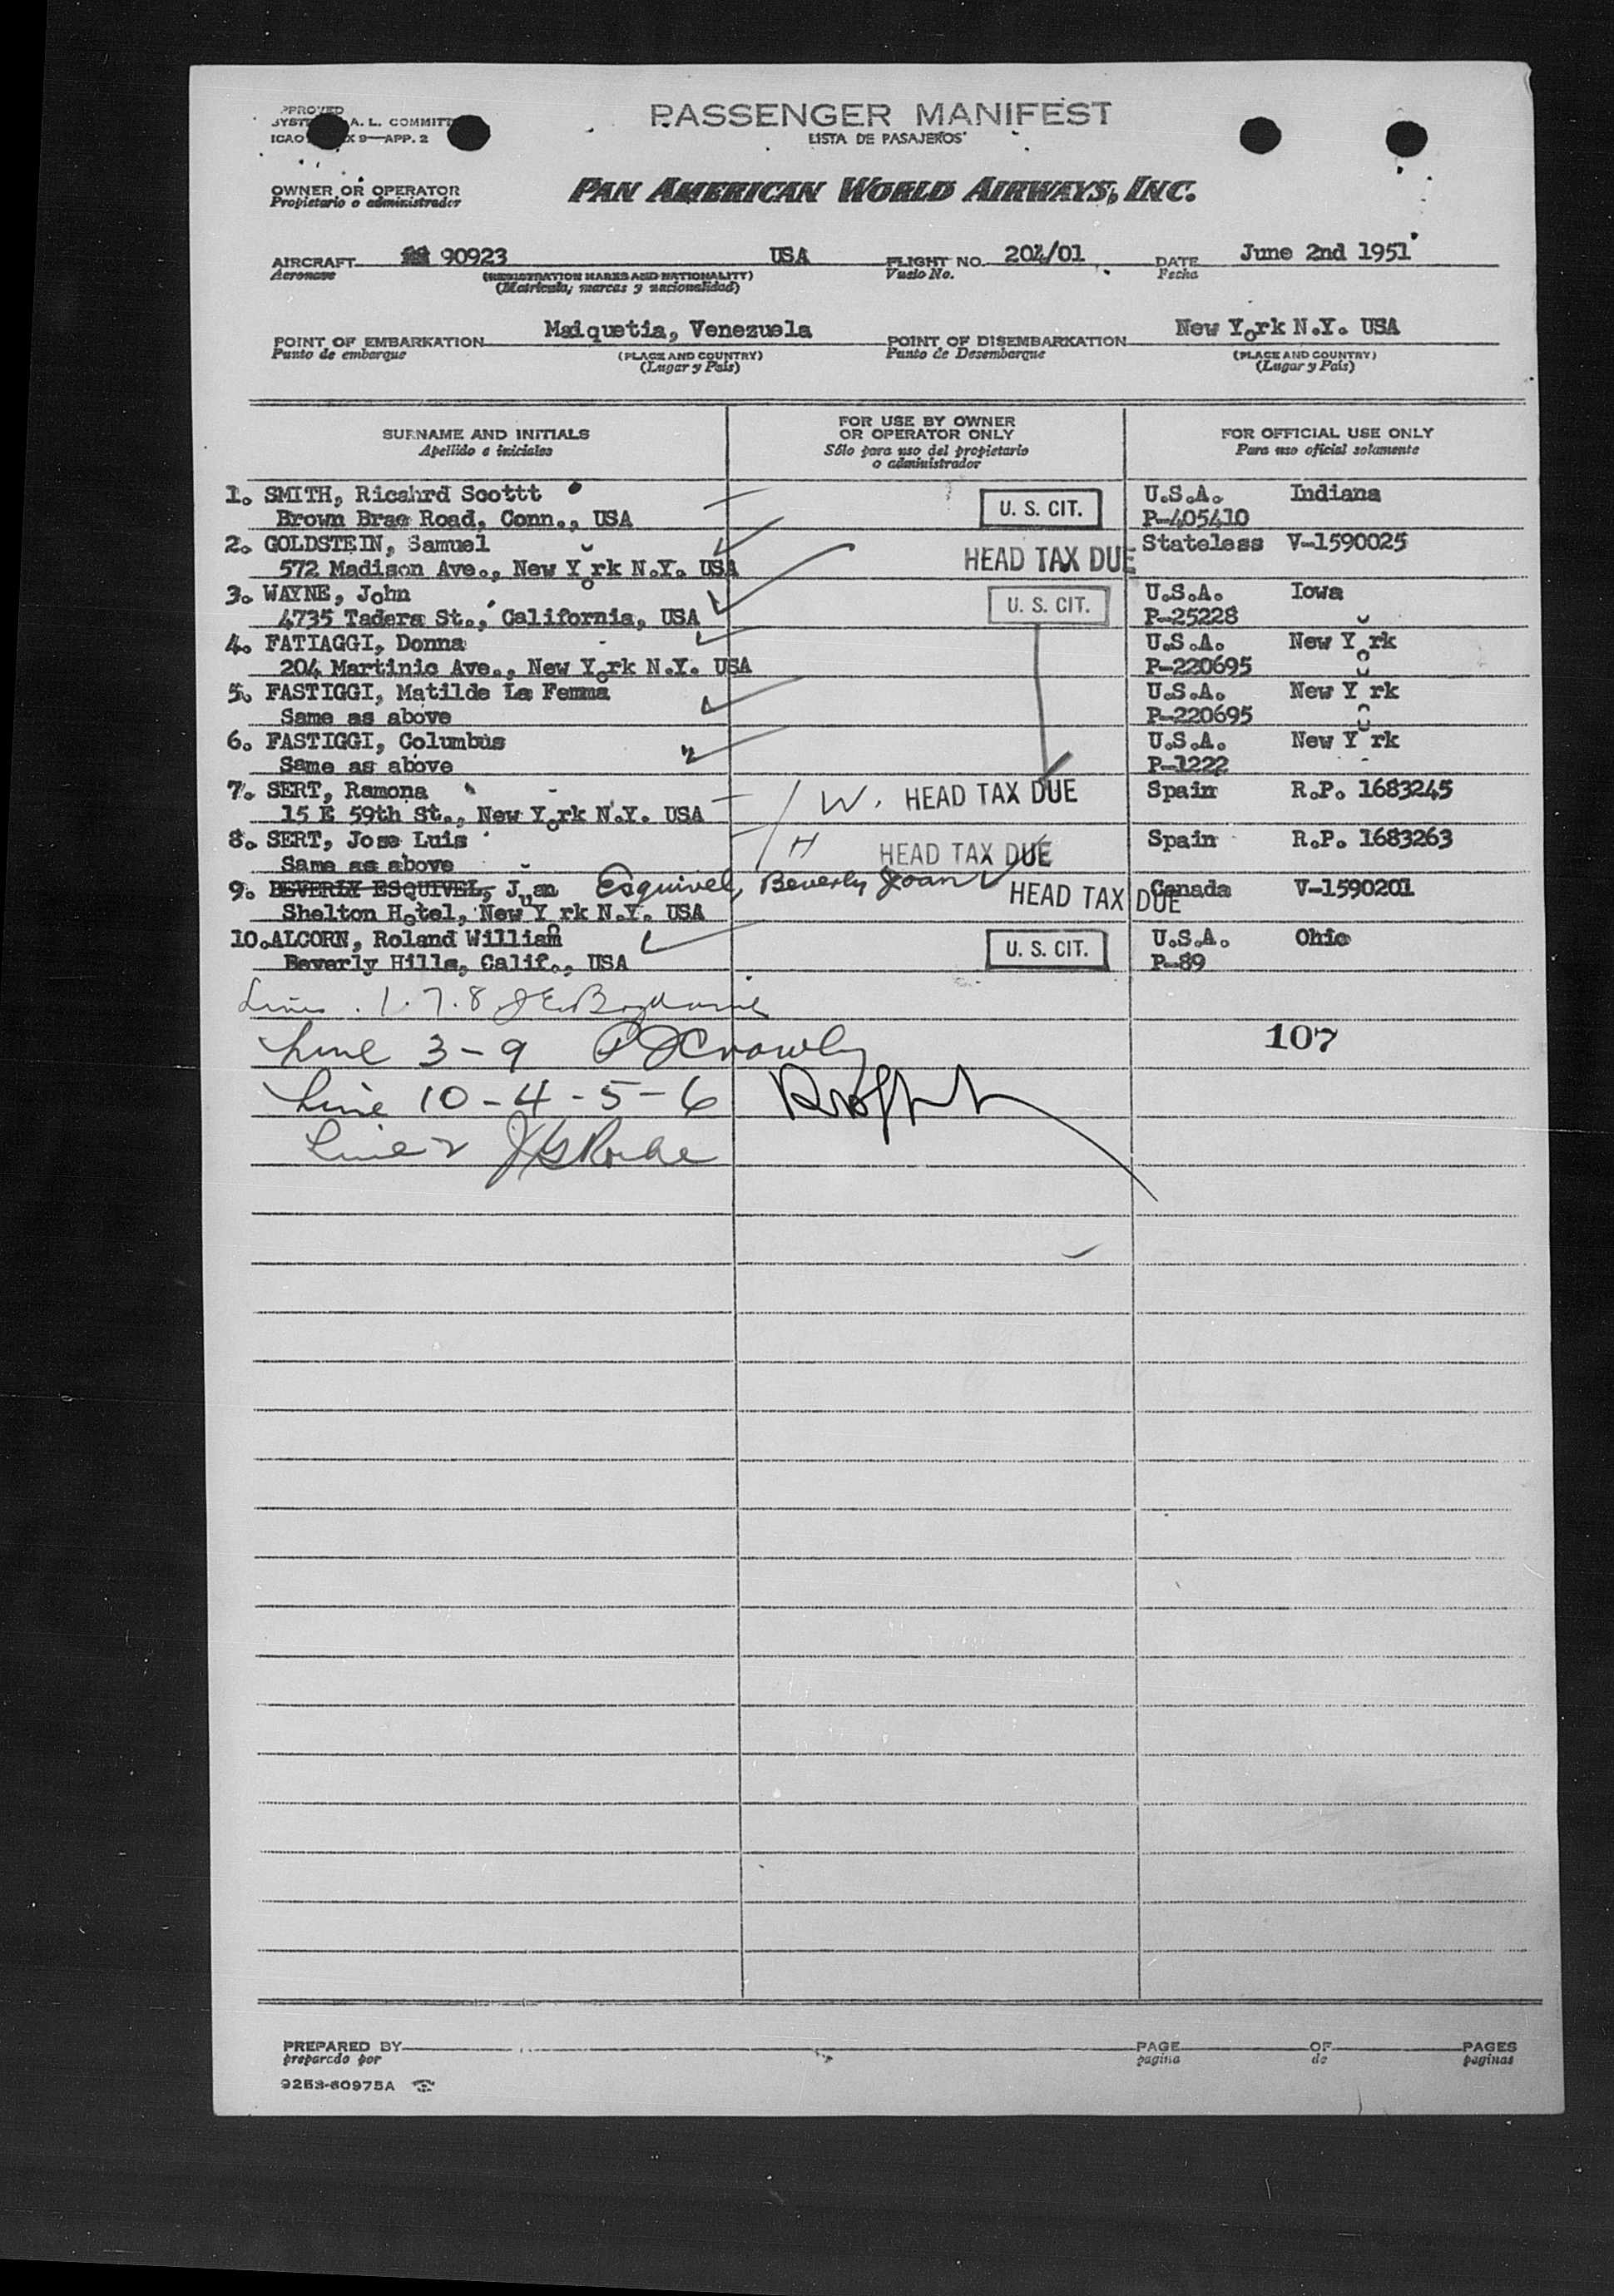 PPROVED
SYSTE A. L. COMMITT
ICAO X 9—APP. 2
PASSENGER MANIFEST
LISTA DE PASAJEROS
OWNER OR OPERATOR
Propietario o administrador
PAN AMERICAN WORLD AIRWAYS, INC.
AIRCRAFT 90923 USA FLIGHT NO. 204/01 DATE June 2nd 1951
Aeronave (REGISTRATION MARKS AND NATIONALITY) Vuelo No. Fecha
(Matricula, marcas y nacionalidad)
POINT OF EMBARKATION Maiquetia, Venezuela POINT OF DISEMBARKATION New York N.Y. USA
Punto de embarque (PLACE AND COUNTRY) Punto de Desembarque (PLACE AND COUNTRY)
(Lugar y País) (Lugar y País)
SURNAME AND INITIALS
Apellido e iniciales
FOR USE BY OWNER
OR OPERATOR ONLY
Sólo para uso del propietario
o administrador
FOR OFFICIAL USE ONLY
Para uso oficial solamente
1. SMITH, Ricahrd Scottt U. S. CIT. U.S.A. Indiana
Brown Brae Road, Conn., USA P-405410
2. GOLDSTEIN, Samuel HEAD TAX DUE Stateless V-1590025
572 Madison Ave., New York N.Y. USA
3. WAYNE, John U. S. CIT. U.S.A. Iowa
4735 Tadera St., California, USA P-25228
4. FATIAGGI, Donna U.S.A. New York
204 Martinic Ave., New York N.Y. USA P-220695
5. FASTIGGI, Matilde La Femma U.S.A. New York
Same as above P-220695
6. FASTIGGI, Columbus U.S.A. New York
Same as above P-1222
7. SERT, Ramona W. HEAD TAX DUE Spain R.P. 1683245
15 E 59th St., New York N.Y. USA
8. SERT, Jose Luis H HEAD TAX DUE Spain R.P. 1683263
Same as above
9. BEVERLY ESQUIVEL, Juan Esquivel, Beverly Joan HEAD TAX DUE Canada V-1590201
Shelton Hotel, New York N.Y. USA
10. ALCORN, Roland William U. S. CIT. U.S.A. Ohio
Beverly Hills, Calif., USA P-89
Lines. 1. 7. 8
Line 3-9 Crowley
107
Line 10-4-5-6
Line 2 JG Roche
PREPARED BY PAGE OF PAGES
preparado por pagina de paginas
9253-60975A